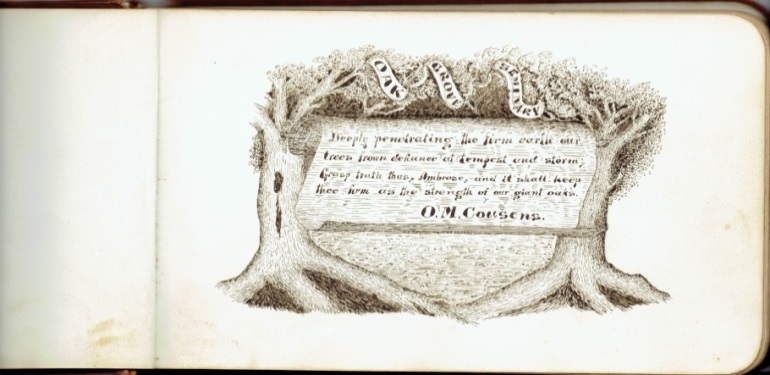 OAK GROVE SEMINARY
Deeply penetrating the firm earth our
trees frown defiance at tempest and storm;
Grasp truth thus, Ambrose, and it shall keep
thee firm as the strength of our giant oaks.
O. M. Cousens.